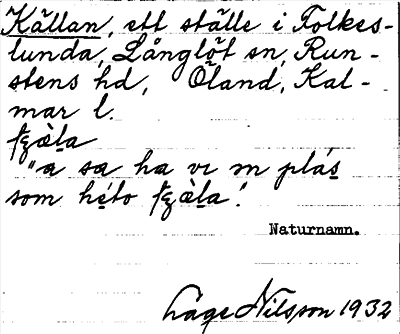 Källan, ett ställe i Folkes-
lunda, Långlöt sn, Run-
stens hd, Öland, Kal-
mar l.
"a sa ha vɩ m plás
som héto
Naturnamn.
Lage Nilsson 1932